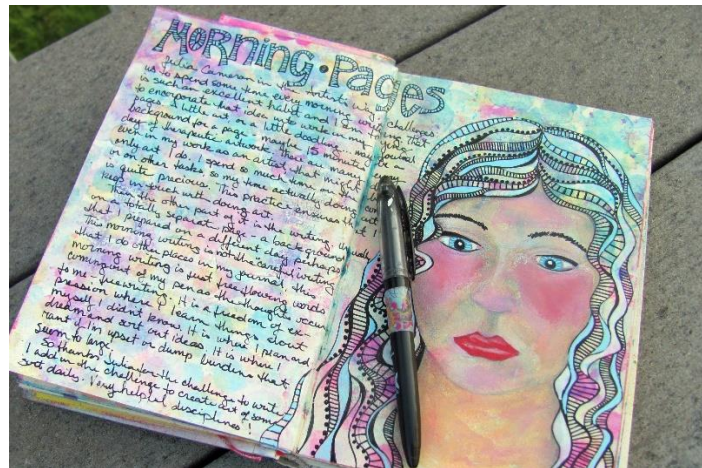 Morning • Pages
Julia Cameron in The Artist's Way challenges
us to spend some time every morning
is such an excellent habit and I am
to incorporate that idea to write in my journal
pages. A little list or a little doodling, maybe
background for a page - maybe 15 minutes a
day of therapeutic artwork. There are many
even in my work as an artist that might be the
only art I do. I spend so much time on
or on other tasks so my time actually doing
is quite precious. This practice ensures that I
keep in touch with doing art.
on
that I prepared on a different day perhaps
This morning writing is not the careful writing
that I do other places in my journal, this
morning writing is that free flowing words
coming out of my pen as the thoughts occur
to me freewriting. It is a freedom of ex-
pression where I learn things about
myself I didn't know. It is where I plan and
dream and sort out ideas. It is where I
rant if I'm upset or dump burdens that
seem to large.
So thanks Julia for the challenge to write,
I add in the challenge to create art of some
sort daily. Very helpful disciplines!